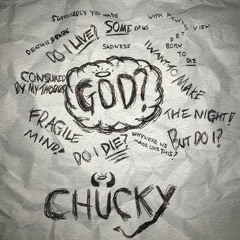 SUPPOSEDLY YOU MADE
SOME OF US
WITH A
VIEW
DO I LIVE?
SADNESS
BORN
TO
DIE
I WANT TO MAKE
CONSUMED
BY MY THOUGHTS
GOD?
THE NIGHT!
FRAGILE
MIND!
DO I DIE?
WHY WERE WE
MADE LIKE THIS?
BUT DO I?
CHUCKY